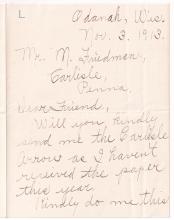 L
Odanah, Wis.
Nov. 3, 1913.
Mr. M. Friedman,
Carlisle,
Penna.
Dear Friend,
Will you kindly
send me the Carlisle
Arrow as I haven't
received the paper
this year.
Kindly do me this